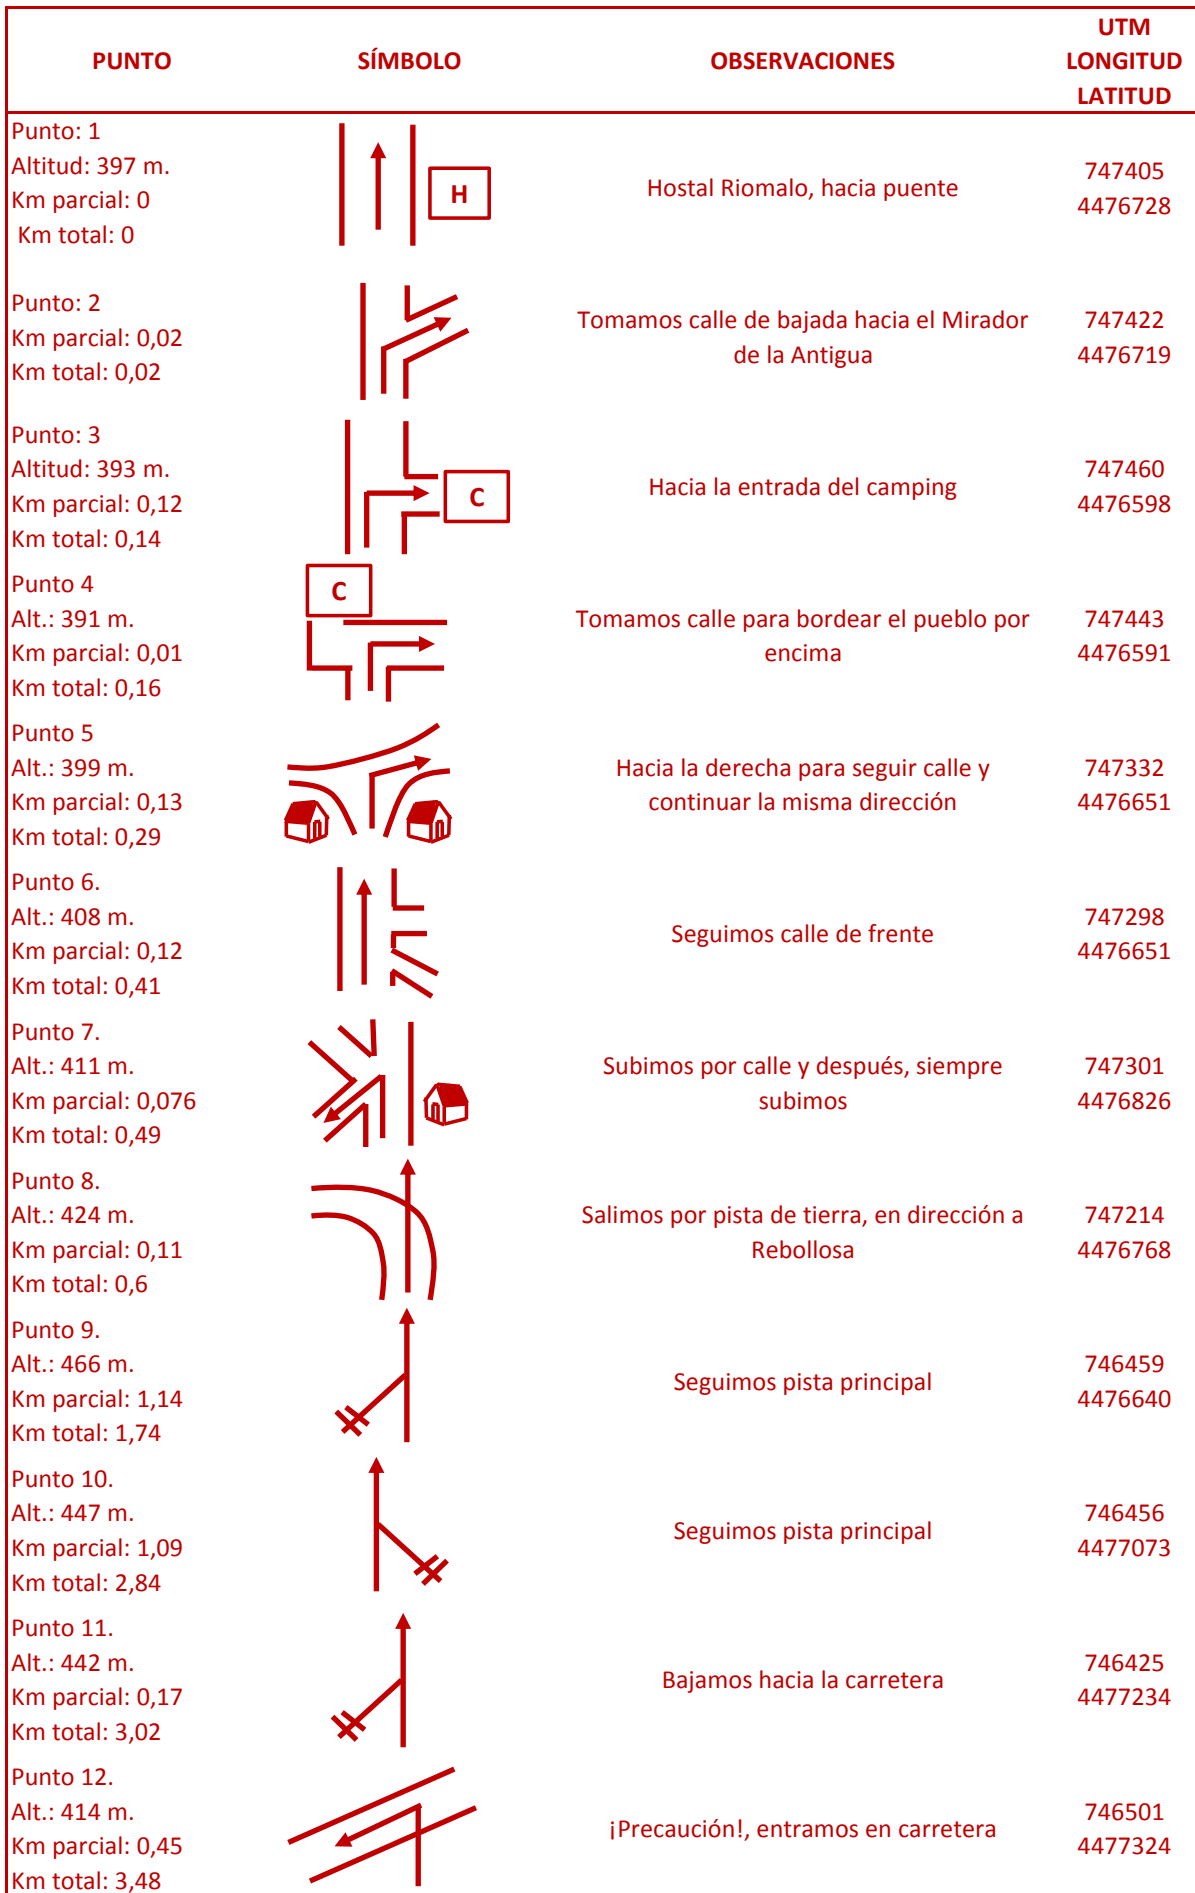 PUNTO
SÍMBOLO
OBSERVACIONES
UTM
LONGITUD
LATITUD
Punto: 1
Altitud: 397 m.
Km parcial: 0
Km total: 0
H
Hostal Riomalo, hacia puente
747405
4476728
Punto: 2
Km parcial: 0,02
Km total: 0,02
Tomamos calle de bajada hacia el Mirador
de la Antigua
747422
4476719
Punto: 3
Altitud: 393 m.
Km parcial: 0,12
Km total: 0,14
C
Hacia la entrada del camping
747460
4476598
Punto 4
Alt.: 391 m.
Km parcial: 0,01
Km total: 0,16
C
Tomamos calle para bordear el pueblo por
encima
747443
4476591
Punto 5
Alt.: 399 m.
Km parcial: 0,13
Km total: 0,29
Hacia la derecha para seguir calle y
continuar la misma dirección
747332
4476651
Punto 6.
Alt.: 408 m.
Km parcial: 0,12
Km total: 0,41
Seguimos calle de frente
747298
4476651
Punto 7.
Alt.: 411 m.
Km parcial: 0,076
Km total: 0,49
Subimos por calle y después, siempre
subimos
747301
4476826
Punto 8.
Alt.: 424 m.
Km parcial: 0,11
Km total: 0,6
Salimos por pista de tierra, en dirección a
Rebollosa
747214
4476768
Punto 9.
Alt.: 466 m.
Km parcial: 1,14
Km total: 1,74
Seguimos pista principal
746459
4476640
Punto 10.
Alt.: 447 m.
Km parcial: 1,09
Km total: 2,84
Seguimos pista principal
746456
4477073
Punto 11.
Alt.: 442 m.
Km parcial: 0,17
Km total: 3,02
Bajamos hacia la carretera
746425
4477234
Punto 12.
Alt.: 414 m.
Km parcial: 0,45
Km total: 3,48
¡Precaución!, entramos en carretera
746501
4477324